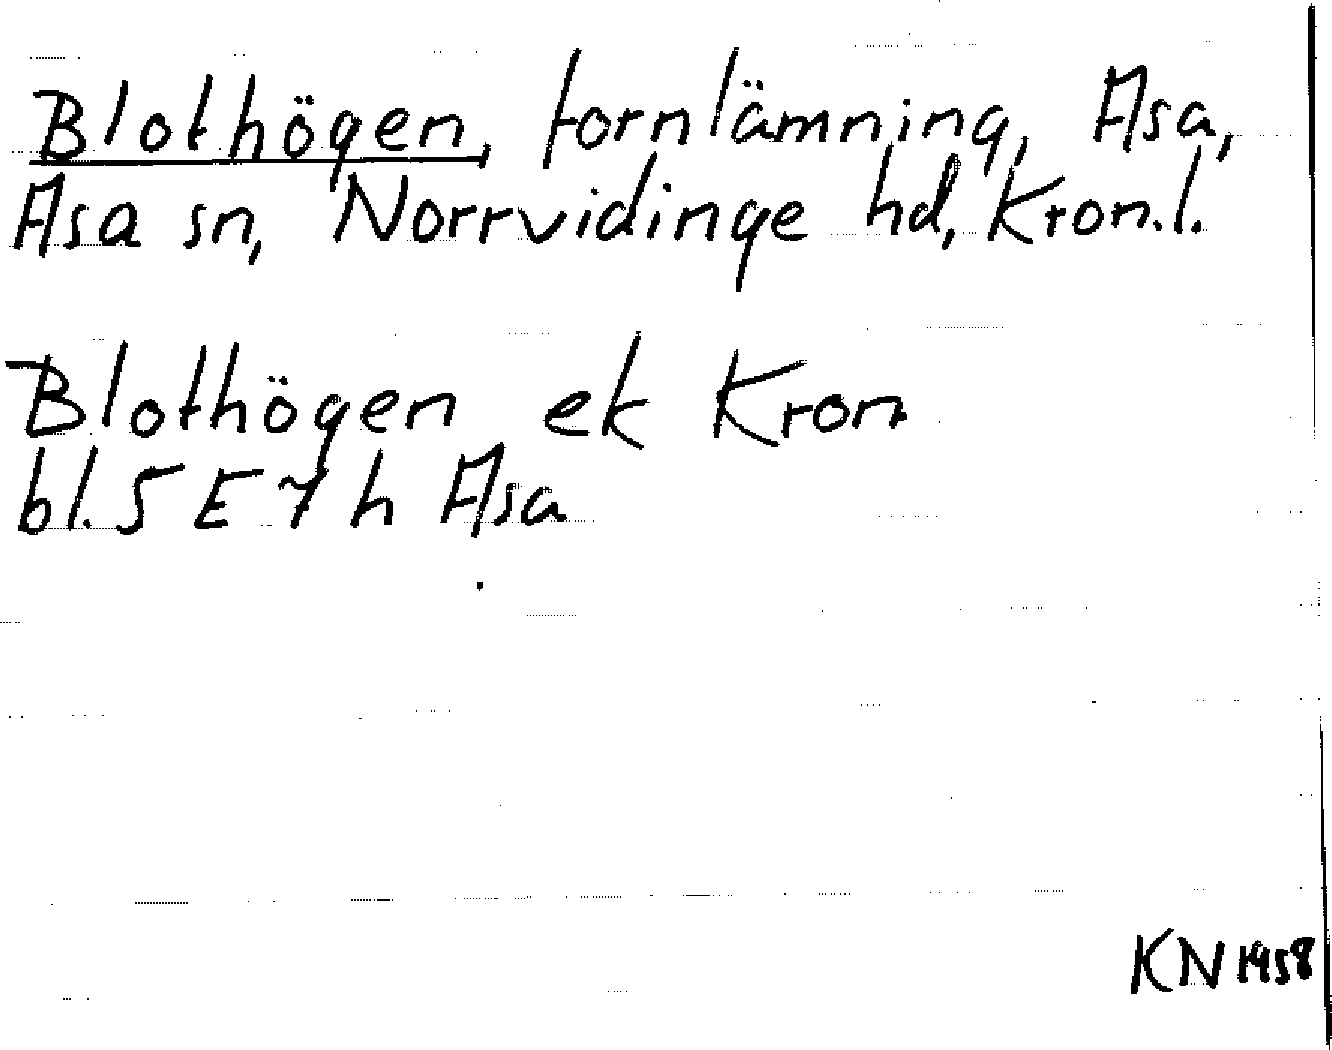 Blothögen, fornlämning, Asa,
Asa sn, Norrvidinge hd, Kron.l.
Blothögen ek Kron
bl. 5 E 7 h Asa
KN 1958